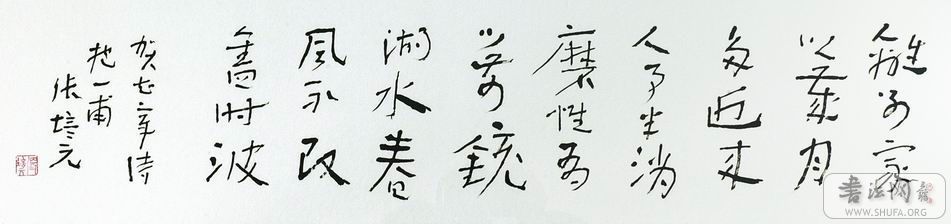 離別家
鄉歲月
多近来
人事半消
磨惟有
門前鏡
湖水春
風不改
舊時波
賀知章詩
抱一甫
张培元
书法网
WWW.SHUFA.ORG